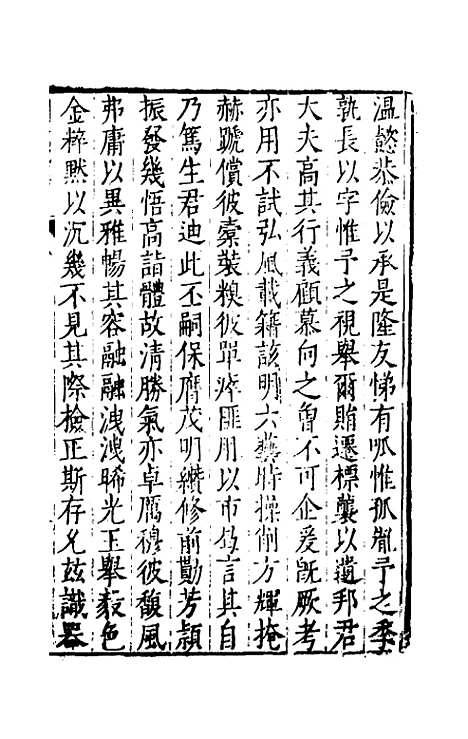 温懿恭儉以承是隆友悌有呱惟孤胤予之季
孰長以字惟予之視舉爾賄遷標囊以遺邦君
大夫高其行義顧慕向之曾不可企爰旣厥考
亦用不試弘風載籍該明六藝時操削方輝掩
赫蹏償彼橐裝糗彼單瘁匪用以市勿言其自
乃篤生君迪此丕嗣保膺茂明纘修前勩芳頴
振發幾悟高詣體故清勝氣亦卓厲穆彼馥風
弗庸以異雅暢其容融融洩洩晞光玉舉毅色
金粹黙以沉幾不見其際檢正斯存允玆識器